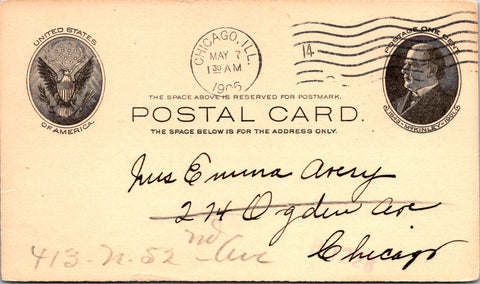 UNITED STATES
OF AMERICA.
CHICAGO, ILL.
MAY 7
1 30 AM
1905
14
POSTAGE ONE CENT
1843-McKINLEY-1901
THE SPACE ABOVE IS RESERVED FOR POSTMARK.
POSTAL CARD.
THE SPACE BELOW IS FOR THE ADDRESS ONLY.
Mrs Emma Avery
274 Ogden Ave
Chicago
413-N. 52nd Ave